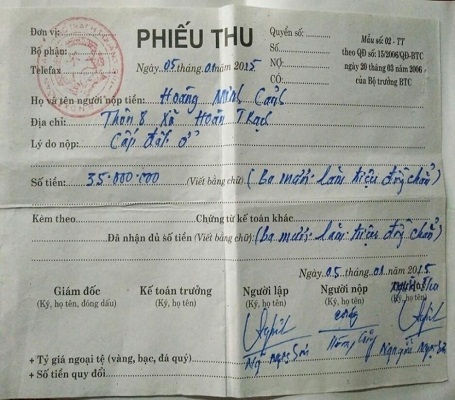 Đơn vị:
Bộ phận:
Telefax
PHIẾU THU
Ngày 05 tháng 01 năm 2015
Quyển số:
Số
NỢ:
CÓ:
Mẫu số: 02 - TT
theo QĐ số: 15/2006/QĐ-BTC
ngày 20 tháng 03 năm 2006
của Bộ trưởng BTC
Họ và tên người nộp tiền: Hoàng Minh Cảnh
Địa chỉ: Thôn 8 Xã Hoàn Trạch
Lý do nộp: Cấp đất ở
Số tiền: 35.000.000 (Viết bằng chữ) (Ba mươi lăm triệu đồng chẵn)
Kèm theo Chứng từ kế toán khác
Đã nhận đủ số tiền (Viết bằng chữ): (Ba mươi lăm triệu đồng chẵn)
Ngày 05 tháng 01 năm 2015
Giám đốc
(Ký, họ tên, đóng dấu)
Kế toán trưởng
(Ký, họ tên)
Người lập
(Ký, họ tên)
Người nộp
(Ký, họ tên)
(Ký, họ tên)
+ Tỷ giá ngoại tệ (vàng, bạc, đá quý)
+ Số tiền quy đổi